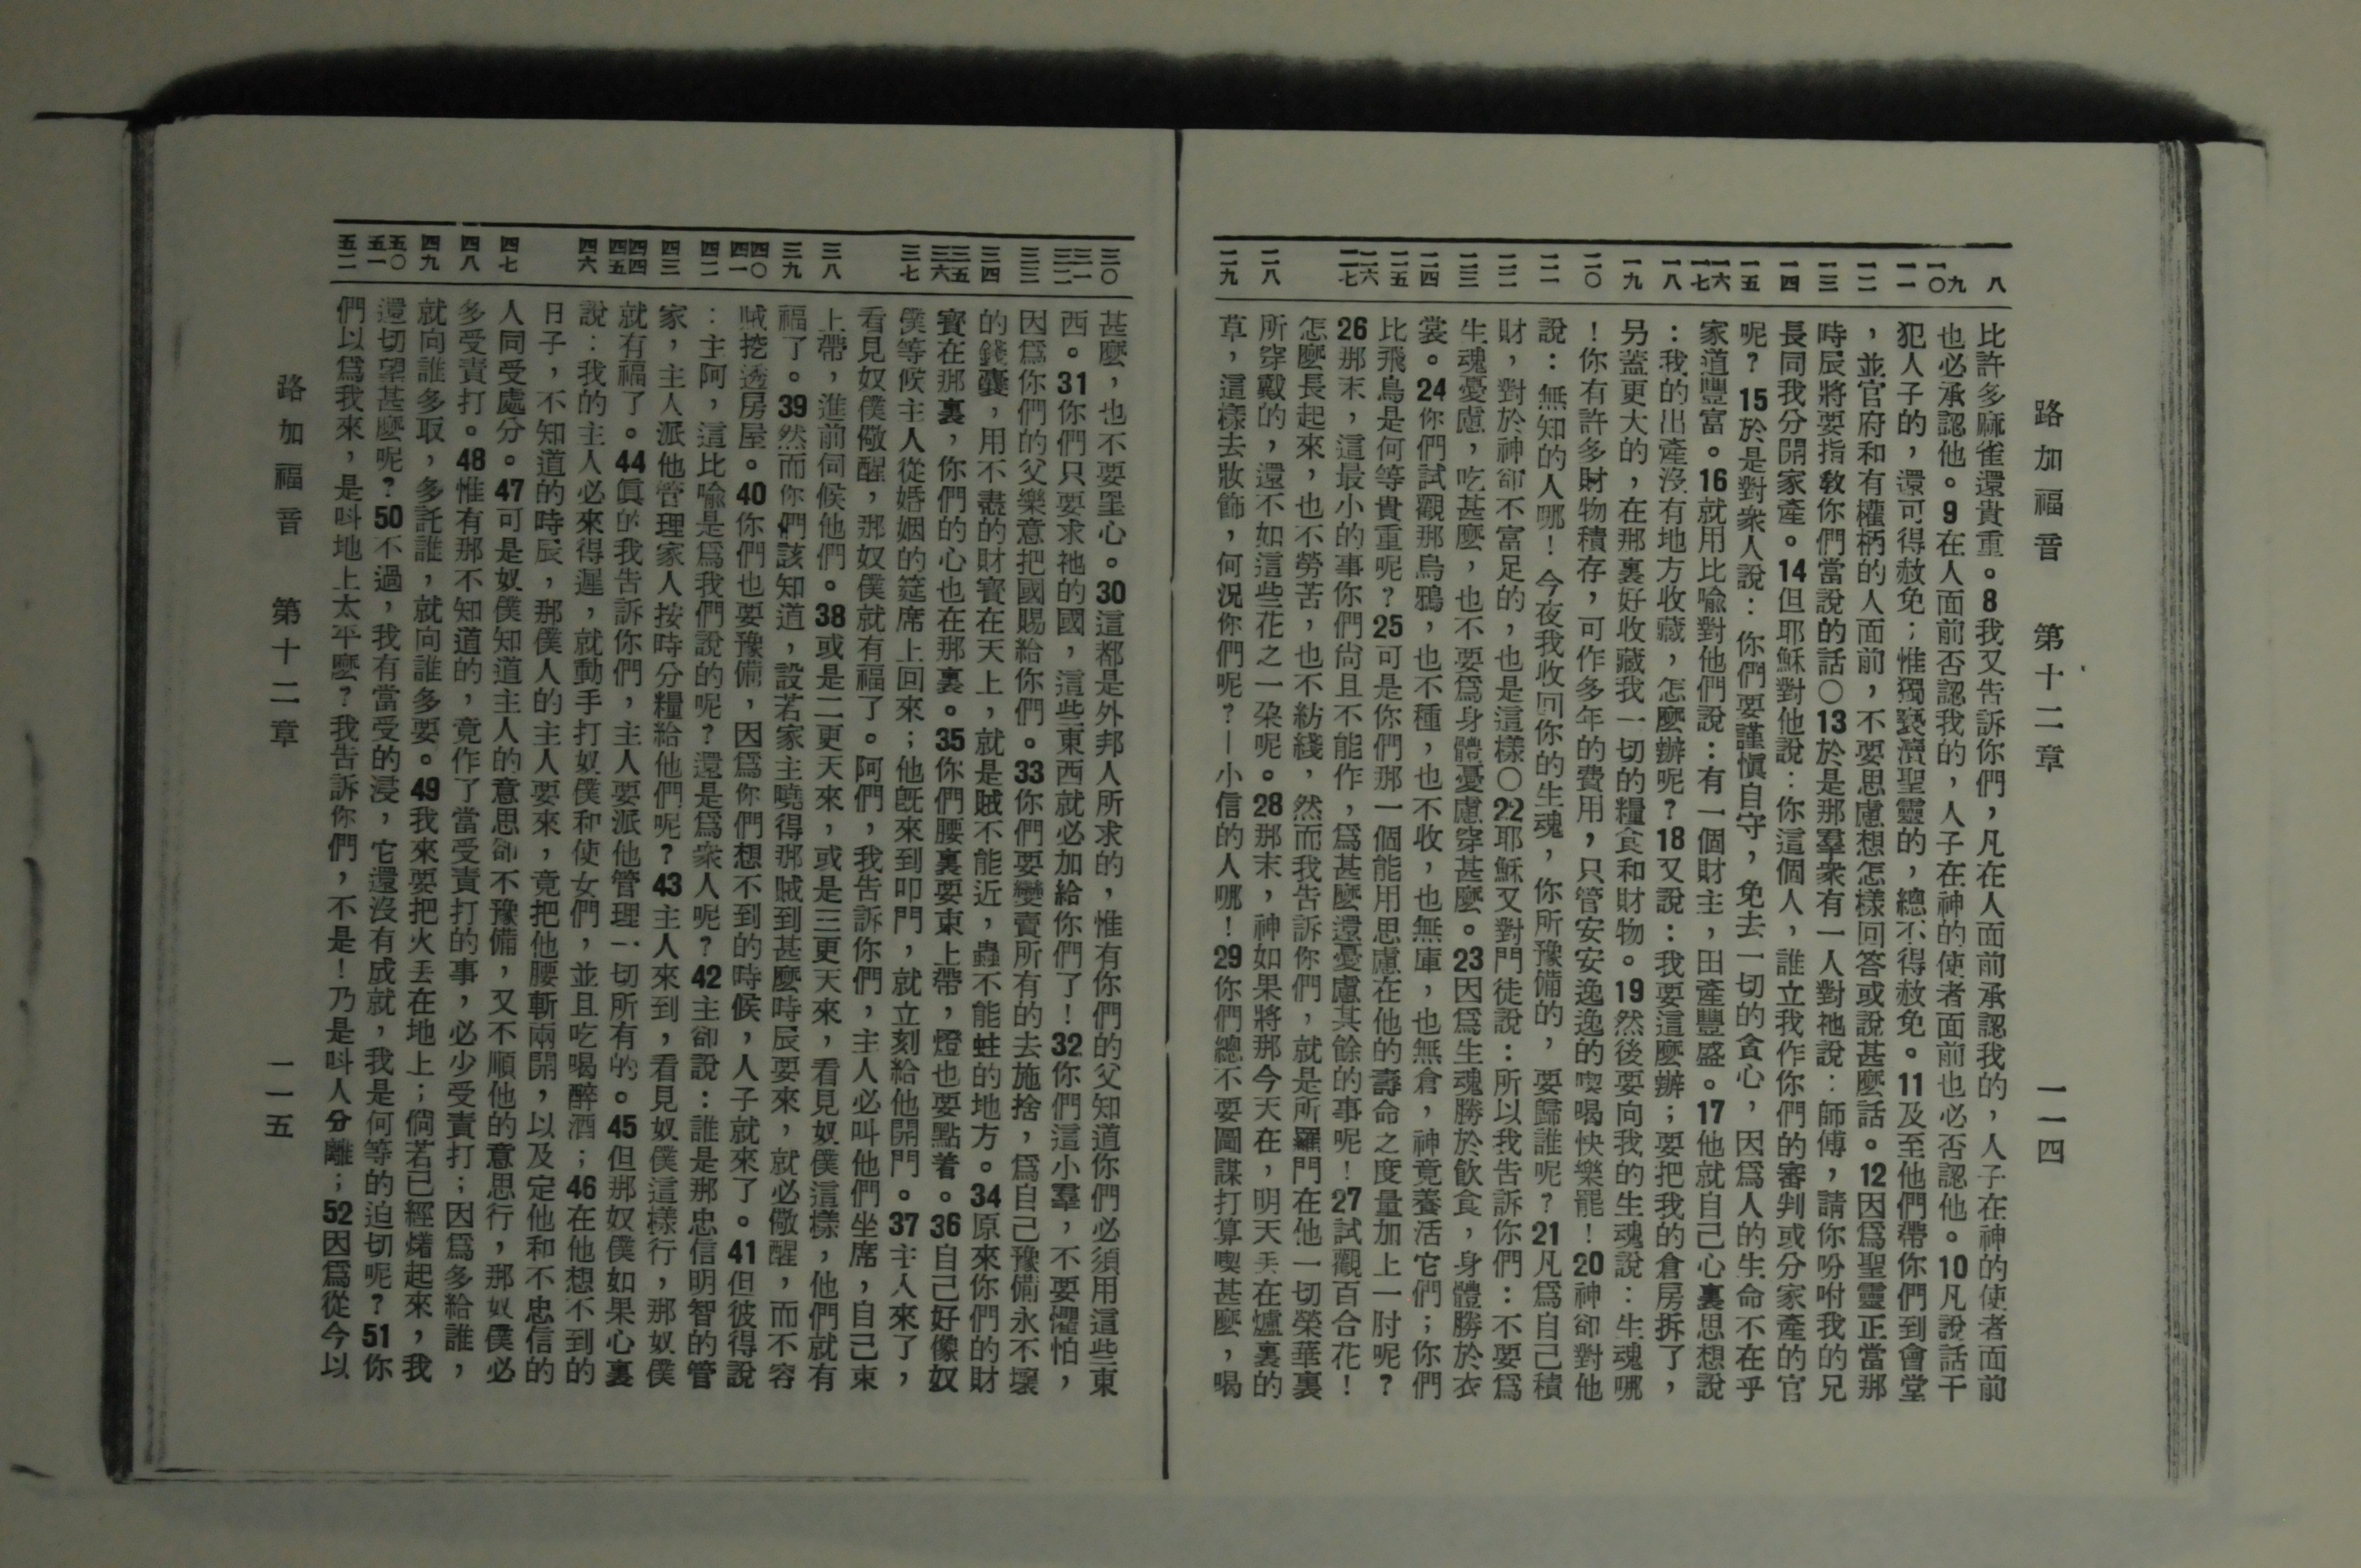 路加福音　第十二章　一一四
八
九
一〇
一一
一二
一三
一四
一五
一六
一七
一八
一九
二〇
二一
二二
二三
二四
二五
二六
二七
二八
二九
比許多麻雀還貴重。8我又告訴你們，凡在人面前承認我的，人子在神的使者面前
也必承認他。9在人面前否認我的，人子在神的使者面前也必否認他。10凡說話干
犯人子的，還可得赦免；惟獨褻瀆聖靈的，總不得赦免。11及至他們帶你們到會堂
，並官府和有權柄的人面前，不要思慮想怎樣回答或說甚麼話。12因爲聖靈正當那
時辰將要指敎你們當說的話〇13於是那羣衆有一人對祂說：師傅，請你吩咐我的兄
長同我分開家產。14但耶穌對他說：你這個人，誰立我作你們的審判或分家產的官
呢？15於是對衆人說：你們要謹愼自守，免去一切的貪心，因爲人的生命不在乎
家道豐富。16就用比喩對他們說：有一個財主，田產豐盛。17他就自己心裏思想說
：我的出產沒有地方收藏，怎麼辦呢？18又說：我要這麼辦；要把我的倉房拆了，
另蓋更大的，在那裏好收藏我一切的糧食和財物。19然後要向我的生魂說：生魂哪
！你有許多財物積存，可作多年的費用，只管安安逸逸的喫喝快樂罷！20神卻對他
說：無知的人哪！今夜我收回你的生魂，你所豫備的，要歸誰呢？21凡爲自己積
財，對於神卻不富足的，也是這樣〇22耶穌又對門徒說：所以我告訴你們：不要爲
生魂憂慮，吃甚麼，也不要爲身體憂慮穿甚麼。23因爲生魂勝於飮食，身體勝於衣
裳。24你們試觀那烏鴉，也不種，也不收，也無庫，也無倉，神竟養活它們；你們
比飛鳥是何等貴重呢？25可是你們那一個能用思慮在他的壽命之度量加上一肘呢？
26那末，這最小的事你們尙且不能作，爲甚麼還憂慮其餘的事呢！27試觀百合花！
怎麼長起來，也不勞苦，也不紡綫，然而我告訴你們，就是所羅門在他一切榮華裏
所穿戴的，還不如這些花之一朶呢。28那末，神如果將那今天在，明天丢在爐裏的
草，這樣去妝飾，何況你們呢？－小信的人哪！29你們總不要圖謀打算喫甚麼，喝
三〇
三一
三二
三三
三四
三五
三六
三七
三八
三九
四〇
四一
四二
四三
四四
四五
四六
四七
四八
四九
五〇
五一
五二
甚麼，也不要罣心。30這都是外邦人所求的，惟有你們的父知道你們必須用這些東
西。31你們只要求祂的國，這些東西就必加給你們了！32你們這小羣，不要懼怕，
因爲你們的父樂意把國賜給你們。33你們要變賣所有的去施捨，爲自己豫備永不壞
的錢囊，用不盡的財寳在天上，就是賊不能近，蟲不能蛀的地方。34原來你們的財
寳在那裏，你們的心也在那裏。35你們腰裏要束上帶，燈也要點着。36自己好像奴
僕等候主人從婚姻的筵席上回來；他旣來到叩門，就立刻給他開門。37主人來了，
看見奴僕儆醒，那奴僕就有福了。阿們，我告訴你們，主人必叫他們坐席，自己束
上帶，進前伺候他們。38或是二更天來，或是三更天來，看見奴僕這樣，他們就有
福了。39然而你們該知道，設若家主曉得那賊到甚麼時辰要來，就必儆醒，而不容
賊挖透房屋。40你們也要豫備，因爲你們想不到的時候，人子就來了。41但彼得說
：主阿，這比喩是爲我們說的呢？還是爲衆人呢？42主卻說：誰是那忠信明智的管
家，主人派他管理家人按時分糧給他們呢？43主人來到，看見奴僕這樣行，那奴僕
就有福了。44眞的我告訴你們，主人要派他管理一切所有的。45但那奴僕如果心裏
說：我的主人必來得遲，就動手打奴僕和使女們，並且吃喝醉酒；46在他想不到的
日子，不知道的時辰，那僕人的主人要來，竟把他腰斬兩開，以及定他和不忠信的
人同受處分。47可是奴僕知道主人的意思卻不豫備，又不順他的意思行，那奴僕必
多受責打。48惟有那不知道的，竟作了當受責打的事，必少受責打；因爲多給誰，
就向誰多取，多託誰，就向誰多要。49我來要把火丢在地上；倘若已經𤏸起來，我
還切望甚麼呢？50不過，我有當受的浸，它還沒有成就，我是何等的迫切呢？51你
們以爲我來，是呌地上太平麼？我告訴你們，不是！乃是呌人分離；52因爲從今以
路加福音　第十二章　一一五